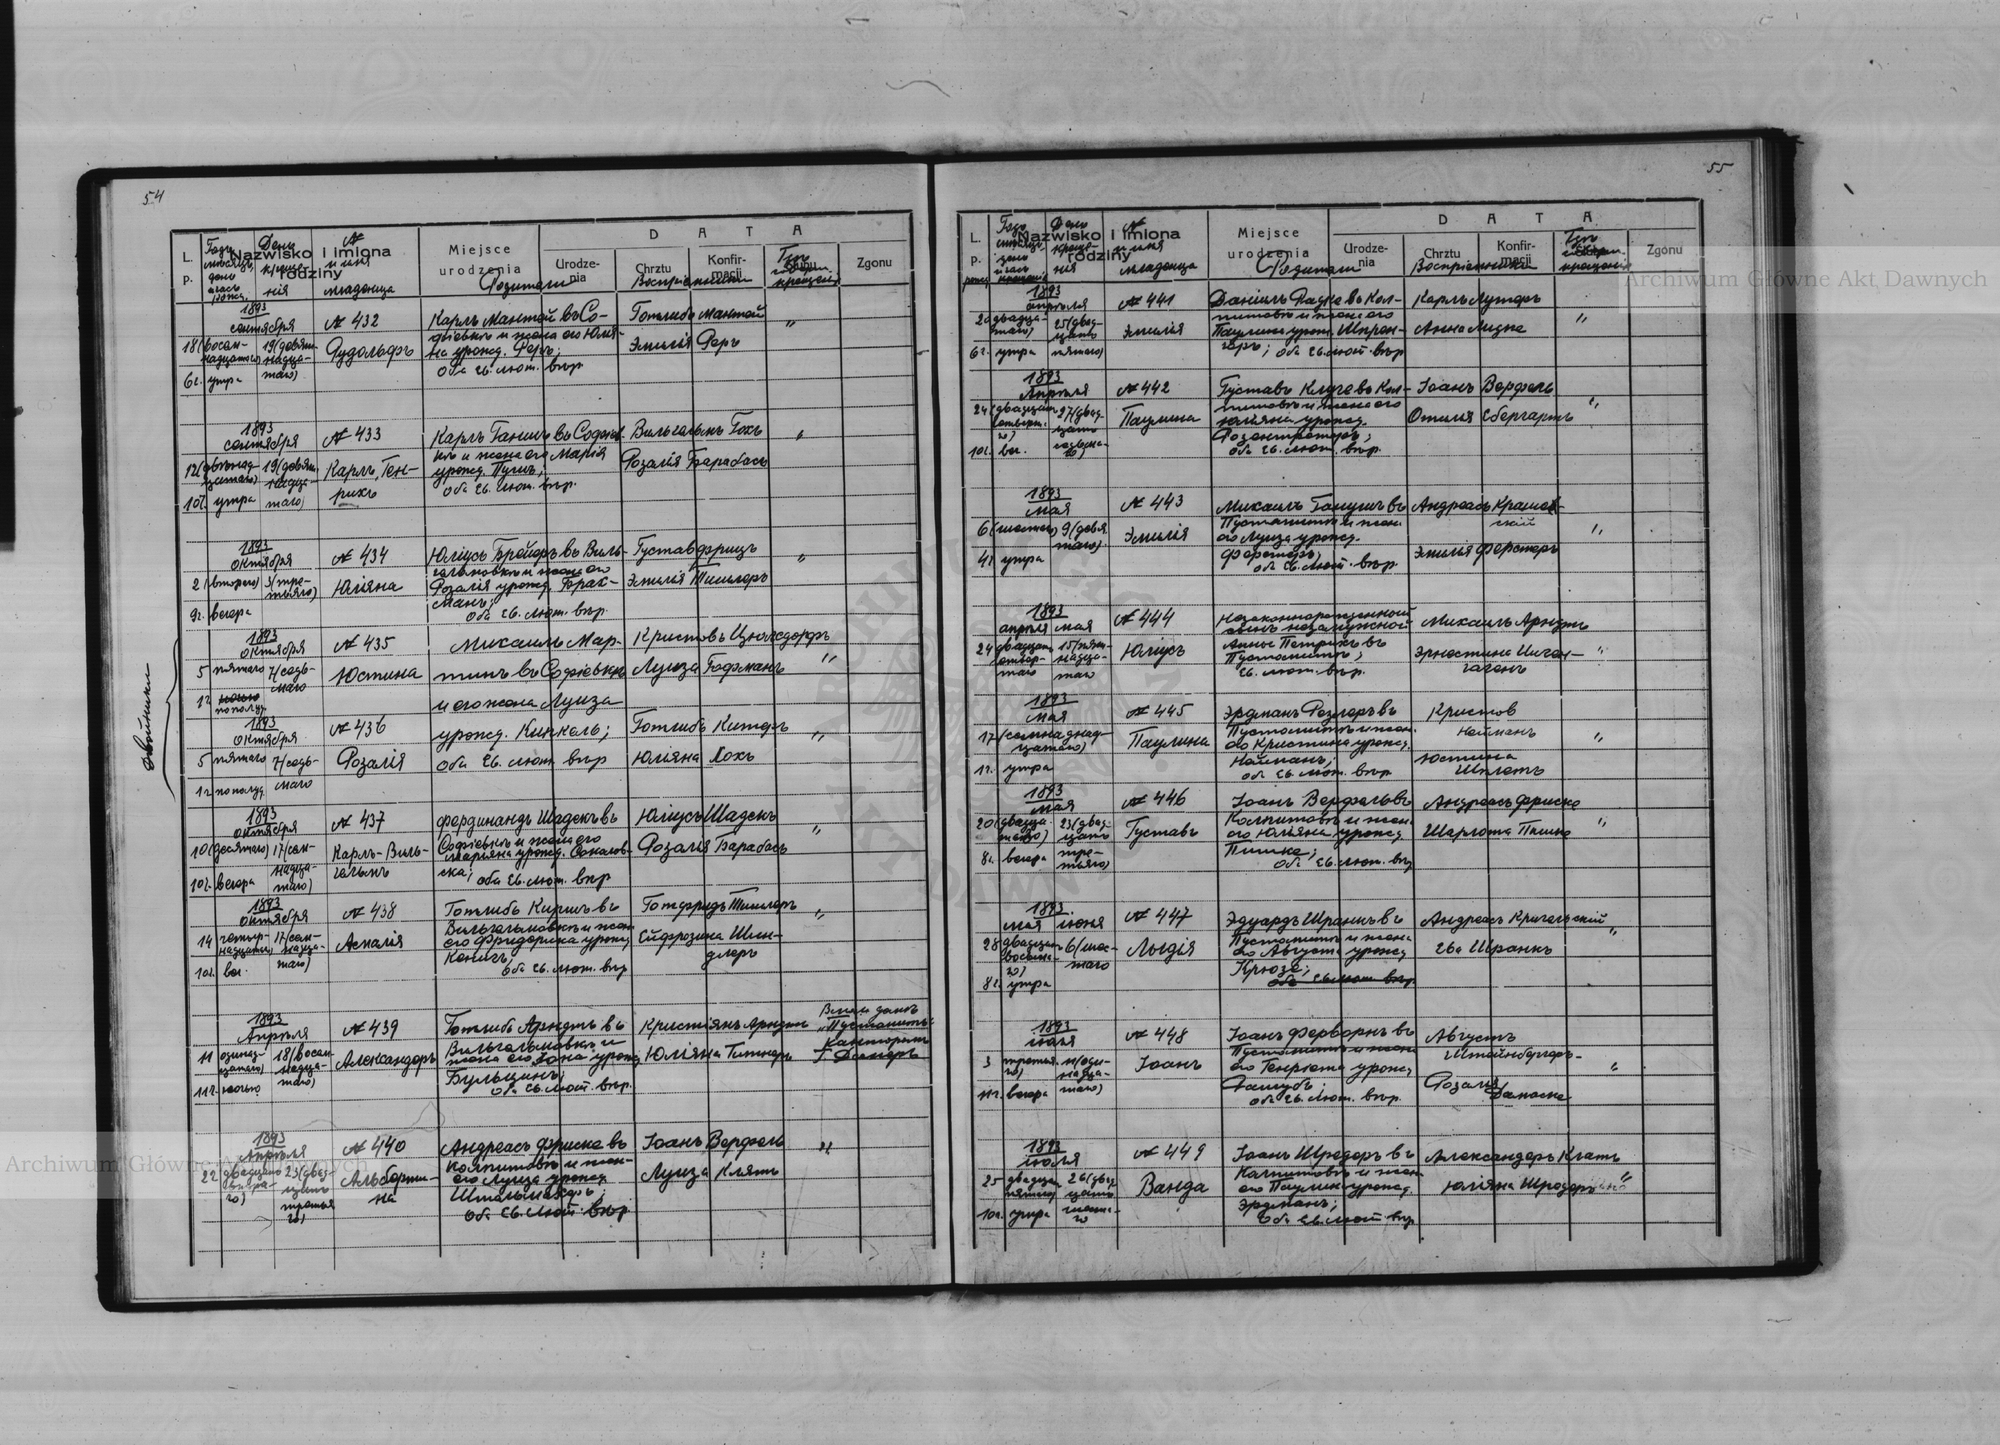 54
L. P.
Nazwisko i imiona rodziny
Miejsce urodzenia
D A T A
Urodze-nia
Chrztu
Konfir-macji
Ślubu
Zgonu
№ и имя младенца
Родители
Восприемники
1893
сентября
18 (восем-
надцатаго)
6 ч. утра
19 (девят-
надца-
таго)
№ 432
Рудольфъ
Карлъ Мантай въ Со-
фiевкѣ и жена его Юлiя-
на урожд. Феръ;
оба ев. лют. вѣр
Готлибъ Мантай
Эмилiя Феръ
"
1893
сентября
12 (двѣнад-
цатаго)
10 ч. утра
19 (девят-
надца-
таго)
№ 433
Карлъ, Ген-
рихъ
Карлъ Ганшъ въ Софiев-
кѣ и жена его Марiя
урожд. Пушъ;
оба ев. лют. вѣр.
Вильгельмъ Гохъ
Розалiя Барабасъ
"
1893
октября
2 (второго)
9 ч. вечера
3 (тре-
тьяго)
№ 434
Юлiяна
Юлiусъ Брейеръ въ Виль-
гельмовкѣ и жена его
Розалiя урожд. Брак-
манъ;
оба ев. лют. вѣр
Густавъ Фрицъ
Эмилiя Тишлеръ
"
двойники
1893
октября
5 пятаго
1 ч пополуд
7 (седь-
маго
№ 435
Юстина
Михаилъ Мар-
тинъ въ Софiевкѣ
и его жена Луиза
урожд. Кинкель;
оба ев. лют. вѣр
Кристовъ Цюльсдорфъ
Луиза Гофманъ
"
1893
октября
5 пятаго
1 ч пополуд
7 (седь-
маго
№ 436
Розалiя
Готлибъ Китеръ
Юлiяна Кохъ
"
1893
октября
10 (десятаго)
10 ч. вечера
17 (сем-
надца-
таго)
№ 437
Карлъ-Виль-
гельмъ
Фердинандъ Шадекъ въ
Софiевкѣ и жена его
Марiяна урожд. Соколов-
ска; оба ев. лют. вѣр
Юлiусъ Шадекъ
Розалiя Барабасъ
"
1893
октября
14 четыр-
надцатаго
10 ч. веч.
17 (сем-
надца-
таго)
№ 438
Амалiя
Готлибъ Киршъ въ
Вильгельмовкѣ и жен
его Фридерика урожд
Кенигъ;
оба ев. лют. вѣр
Готфридъ Тишлеръ
Ейфрозина Шин-
длеръ
"
1893
Апрѣля
11 одинад-
цатаго)
11 ч. ночью
18 (восем
надца-
таго)
№ 439
Александеръ
Готлибъ Арндтъ въ
Вильгельмовкѣ и
жена его Анна урожд
Бульцинъ;
оба ев. лют. вѣр.
Кристiянъ Арндтъ
Юлiяна Титнеръ
"Пустомитъ"
Канторомъ
1893
Апрѣля
22 двадцать
втора-
го)
23 (двад-
цать
третья
го)
№ 440
Альберти-
на
Андреасъ Фриске въ
Колпитовѣ и жен-
его Луиза урожд
Штельмахеръ;
оба ев. лют. вѣр.
Iоанъ Верфель
Луиза Клятъ
"
55
L. P.
Nazwisko i imiona rodziny
Miejsce urodzenia
D A T A
Urodze-nia
Chrztu
Konfir-macji
Ślubu
Zgonu
№ и имя младенца
Родители
Восприемники
1893
апрѣля
20 двадца-
таго)
6 ч. утра
25 (двад-
цать
пятаго)
№ 441
Эмилiя
Данiилъ Радке въ Кол-
питовѣ и жена его
Паулина урожд. Шпрен-
геръ; оба ев. лют. вѣр
Карлъ Лутеръ
Анна Лидке
"
1893
Апрѣля
24 (двадцат
четверт.
го)
10 ч. веч.
27 (двад-
цать
седьма-
го)
№ 442
Паулина
Густавъ Клуге въ Кол-
питовѣ и жена его
Юлiяна урожд.
Розентретеръ;
оба ев. лют. вѣр.
Iоанъ Верфель
Отилiя Ебергартъ
"
1893
мая
6 (шестаго)
4 ч утра
9 (девя
таго).
№ 443
Эмилiя
Михаилъ Ганушъ въ
Пустомитѣ и жена
его Луиза урожд.
Ферстеръ,
оба ев. лют. вѣр.
Андреасъ Крашев-
скiй
Эмилiя Ферстеръ
"
1893
апрѣля мая
24 двадцат.
четвер-
таго
15 (пят-
надца-
таго
№ 444
Юлiусъ
Незаконнорожденный
сынъ незамужной
Анны Петрикъ въ
Пустомитѣ;
ев. лют. вѣр.
Михаилъ Арндтъ
Эрнестина Циген-
гагенъ
"
1893
мая
17 (семнаднад-
цатаго)
1 ч. утра
№ 445
Паулина
Эрдманъ Рецлеръ въ
Пустомитѣ и жен-
его Кристина урожд.
Найманъ;
оба ев. лют. вѣр
Кристов
Найманъ
Юстина
Шплетъ
"
1893
мая
20 (двадца-
таго)
8 ч. вечера
23 (двад-
цать
тре-
тьяго)
№ 446
Густавъ
Iоанъ Верфель въ
Колпитовѣ и жен-
его Юлiяна урожд
Пишке;
оба ев. лют. вѣр
Андреасъ Фриске
Шарлота Пашко
"
1893.
мая июня
28 двадцат
восьма-
го)
8 ч. утра
6 (шес-
таго
№ 447
Лыдiя
Эдуардъ Шранкъ въ
Пустомитѣ и жена
его Августа урожд
Крюзе;
оба ев. лют. вѣр.
Андреасъ Кригельскiй
Ева Шранкъ
"
1893
июля
3 третья
го)
11 ч. вечера
11 (оди-
надца-
таго)
№ 448
Iоанъ
Iоанъ Ферворнъ въ
Пустомитѣ и жена
его Генрiета урожд
Рашубъ;
оба ев. лют. вѣр.
Августъ
Штейнбергеръ-
Розалiя
Данолке
"
1893
июля
25 двадцат
пятаго)
10 ч. утра
26 (двад
цать
шеста-
го
№ 449
Ванда
Iоанъ Шредеръ въ
Колпитовѣ и жен
его Паулин урожд.
Эрдманъ;
оба ев. лют вѣр
Александеръ Клатъ
Юлiяна Шредеръ
"
Archiwum Główne Akt Dawnych
Archiwum Główne Akt Dawnych